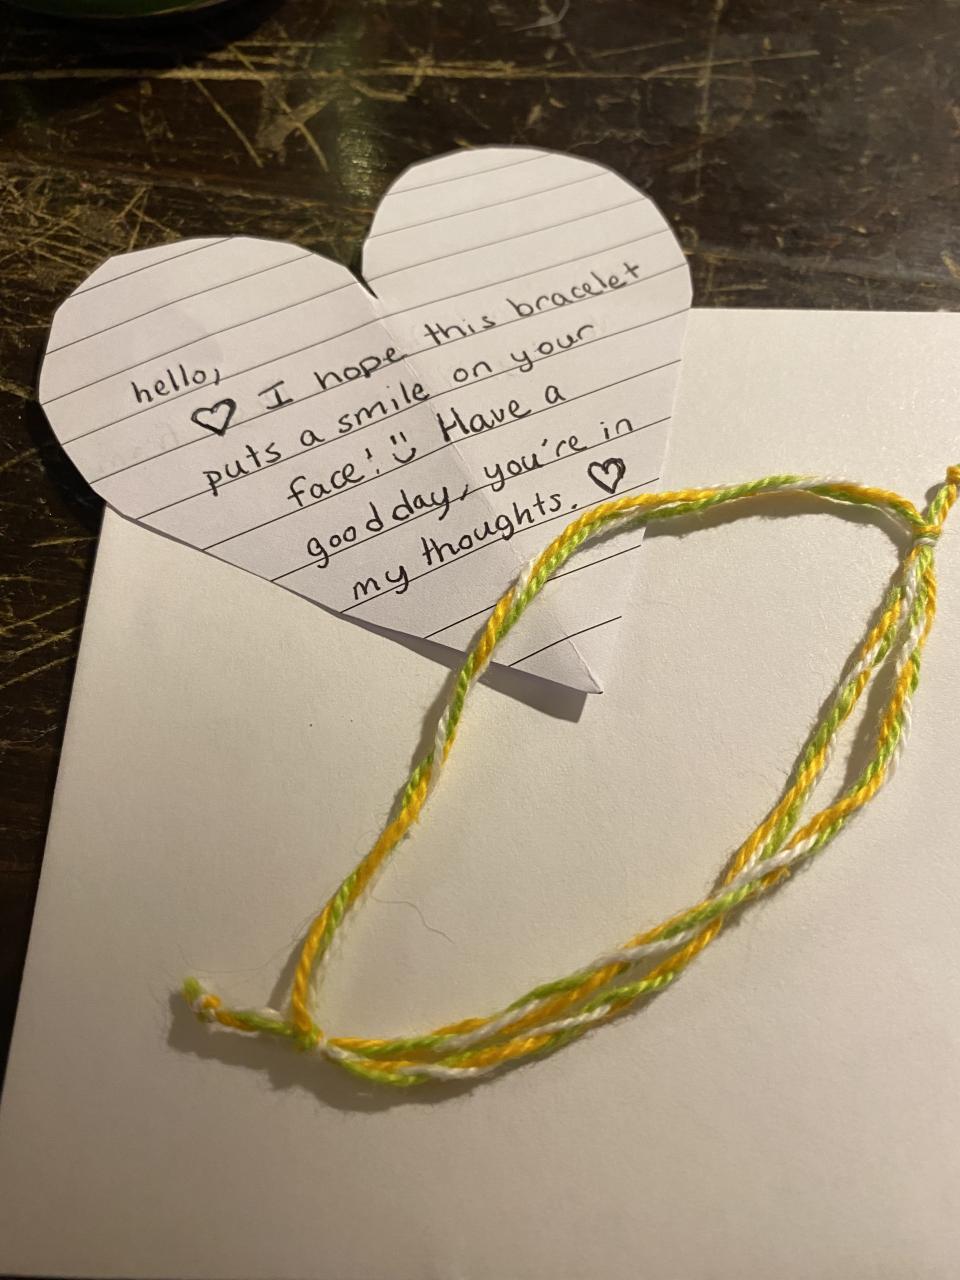 hello,
♡ I hope this bracelet
puts a smile on your
face! :) Have a
good day, you're in
my thoughts. ♡